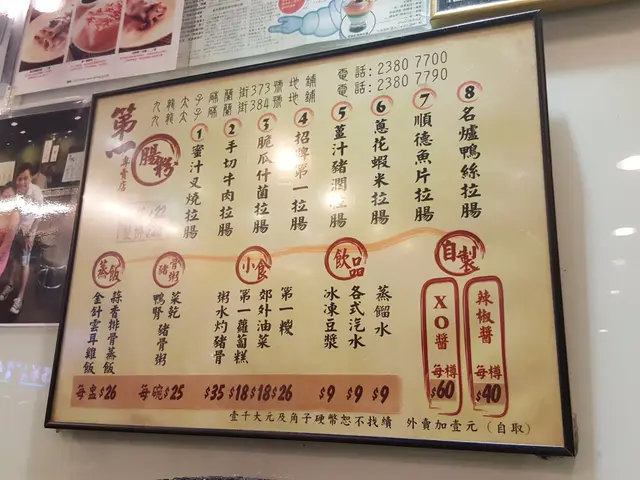 九龍太子砵蘭街373號地舖 電話:2380 7700
九龍太子砵蘭街384號地舖 電話:2380 7790
第一
專賣店
腸粉
1 蜜汁叉燒拉腸
2 手切牛肉拉腸
3 脆瓜什菌拉腸
4 招牌第一拉腸
5 薑汁豬潤拉腸
6 蔥花蝦米拉腸
7 順德魚片拉腸
8 名爐鴨絲拉腸
蒸飯
蒜香排骨蒸飯
金針雲耳雞飯
每盅$26
豬骨粥
菜乾
鴨腎豬骨粥
每碗$25
小食
第一糉 $26
郊外油菜 $18
第一蘿蔔糕 $18
粥水灼豬骨 $35
飲品
蒸餾水 $9
各式汽水 $9
冰凍豆漿 $9
自製
辣椒醬 每樽 $40
XO醬 每樽 $60
壹千大元及角子硬幣恕不找續 外賣加壹元(自取)